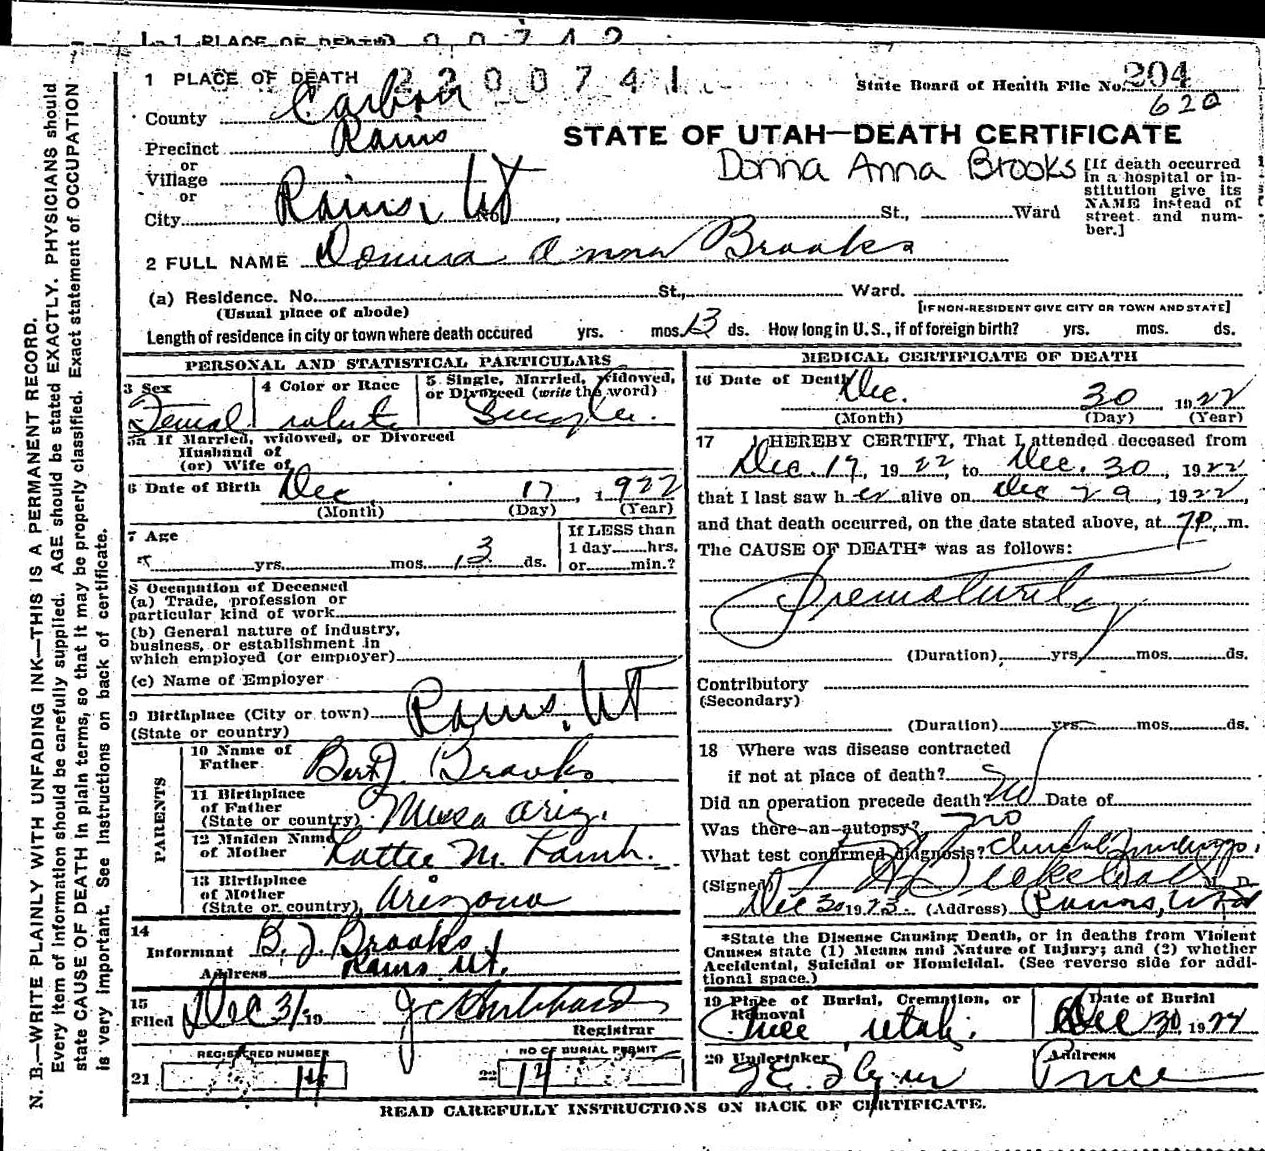 1 PLACE OF DEATH
2200741
State Board of Health File No. 204
620
County Carbon
STATE OF UTAH—DEATH CERTIFICATE
Precinct Rains
or
Village
or
City Rains, UT No. St., Ward
Donna Anna Brooks
[If death occurred in a hospital or institution give its NAME instead of street and number.]
2 FULL NAME Donna Anna Brooks
(a) Residence. No. St., Ward.
(Usual place of abode)
[IF NON-RESIDENT GIVE CITY OR TOWN AND STATE]
Length of residence in city or town where death occured yrs. mos. 13 ds. How long in U.S., if of foreign birth? yrs. mos. ds.
PERSONAL AND STATISTICAL PARTICULARS
3 Sex
Femal
4 Color or Race
white
5 Single, Married, Widowed, or Divorced (write the word)
Single.
5a If Married, widowed, or Divorced
Husband of
(or) Wife of
6 Date of Birth Dec 17, 1922
(Month) (Day) (Year)
7 Age
yrs. mos. 13 ds.
If LESS than
1 day hrs.
or min.?
8 Occupation of Deceased
(a) Trade, profession or
particular kind of work
(b) General nature of industry,
business, or establishment in
which employed (or employer)
(c) Name of Employer
9 Birthplace (City or town) Rains, UT
(State or country)
PARENTS
10 Name of
Father Bert J. Brooks
11 Birthplace
of Father
(State or country) Mesa Ariz.
12 Maiden Name
of Mother Lottie M. Lamb.
13 Birthplace
of Mother
(State or country) Arizona
14
Informant B. J. Brooks
Address Rains Ut.
15
Filed Dec 31 19
Registrar
REGISTERED NUMBER
21 14
NO OF BURIAL PERMIT
22 14
MEDICAL CERTIFICATE OF DEATH
16 Date of Death Dec. 30 1922
(Month) (Day) (Year)
17 I HEREBY CERTIFY, That I attended deceased from
Dec. 17, 1922 to Dec. 30, 1922
that I last saw her alive on Dec 29, 1922,
and that death occurred, on the date stated above, at 7P. m.
The CAUSE OF DEATH* was as follows:
Prematurity
(Duration) yrs. mos. ds.
Contributory
(Secondary)
(Duration) yrs. mos. ds.
18 Where was disease contracted
if not at place of death?
Did an operation precede death? no Date of
Was there an autopsy? no
What test confirmed diagnosis? Clinical Findings.
(Signed) M. D.
Dec 30 1923. (Address) Rains, Utah
*State the Disease Causing Death, or in deaths from Violent
Causes state (1) Means and Nature of Injury; and (2) whether
Accidental, Suicidal or Homicidal. (See reverse side for additional space.)
19 Place of Burial, Cremation, or
Removal
Price, Utah.
Date of Burial
Dec 30 1922
20 Undertaker
J. E. Flynn
Address
Price
READ CAREFULLY INSTRUCTIONS ON BACK OF CERTIFICATE.
N. B.—WRITE PLAINLY WITH UNFADING INK—THIS IS A PERMANENT RECORD.
Every item of information should be carefully supplied. AGE should be stated EXACTLY. PHYSICIANS should
state CAUSE OF DEATH in plain terms, so that it may be properly classified. Exact statement of OCCUPATION
is very important. See instructions on back of certificate.